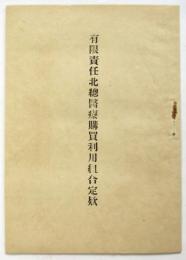 有限責任北總醫療購買利用組合定款